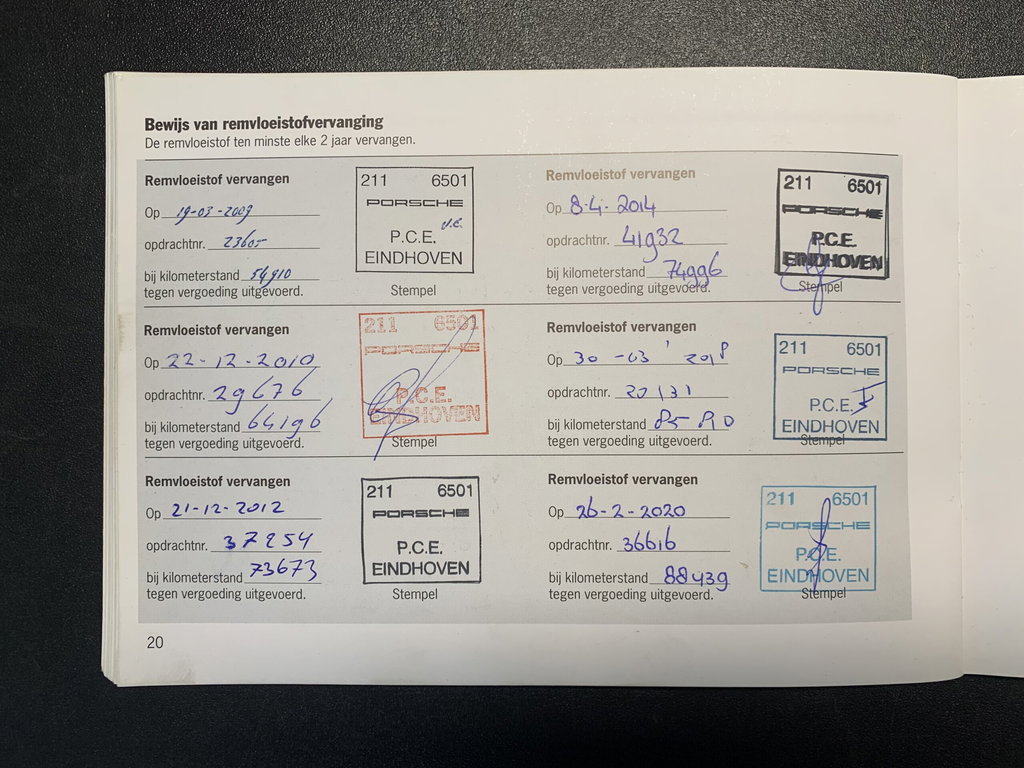 Bewijs van remvloeistofvervanging
De remvloeistof ten minste elke 2 jaar vervangen.
Remvloeistof vervangen
Op 19-03-2009
opdrachtnr.
bij kilometerstand 54910
tegen vergoeding uitgevoerd.
211 6501
PORSCHE
P.C.E.
EINDHOVEN
Stempel
Remvloeistof vervangen
Op 22-12-2010
opdrachtnr. 29676
bij kilometerstand 64196
tegen vergoeding uitgevoerd.
211 6501
PORSCHE
P.C.E.
EINDHOVEN
Stempel
Remvloeistof vervangen
Op 21-12-2012
opdrachtnr. 37254
bij kilometerstand 73673
tegen vergoeding uitgevoerd.
211 6501
PORSCHE
P.C.E.
EINDHOVEN
Stempel
Remvloeistof vervangen
Op 8-4-2014
opdrachtnr. 41932
bij kilometerstand 74996
tegen vergoeding uitgevoerd.
211 6501
PORSCHE
P.C.E.
EINDHOVEN
Stempel
Remvloeistof vervangen
Op 30-03' 2018
opdrachtnr.
bij kilometerstand
tegen vergoeding uitgevoerd.
211 6501
PORSCHE
P.C.E.
EINDHOVEN
Stempel
Remvloeistof vervangen
Op 26-2-2020
opdrachtnr. 36616
bij kilometerstand 88439
tegen vergoeding uitgevoerd.
211 6501
PORSCHE
P.C.E.
EINDHOVEN
Stempel
20